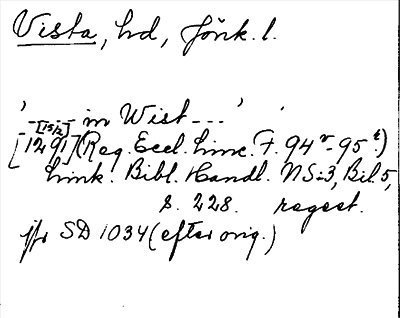 Vista, hd, Jönk. l.
' - in Wist --- '
-[15/2]-
[1291] (Reg. Eccl. Linc. F. 94 v - 95 r)
Link. Bibl. Handl. NS:3, Bil. 5,
s. 228. regest.
jfr SD 1034 (efter orig.)